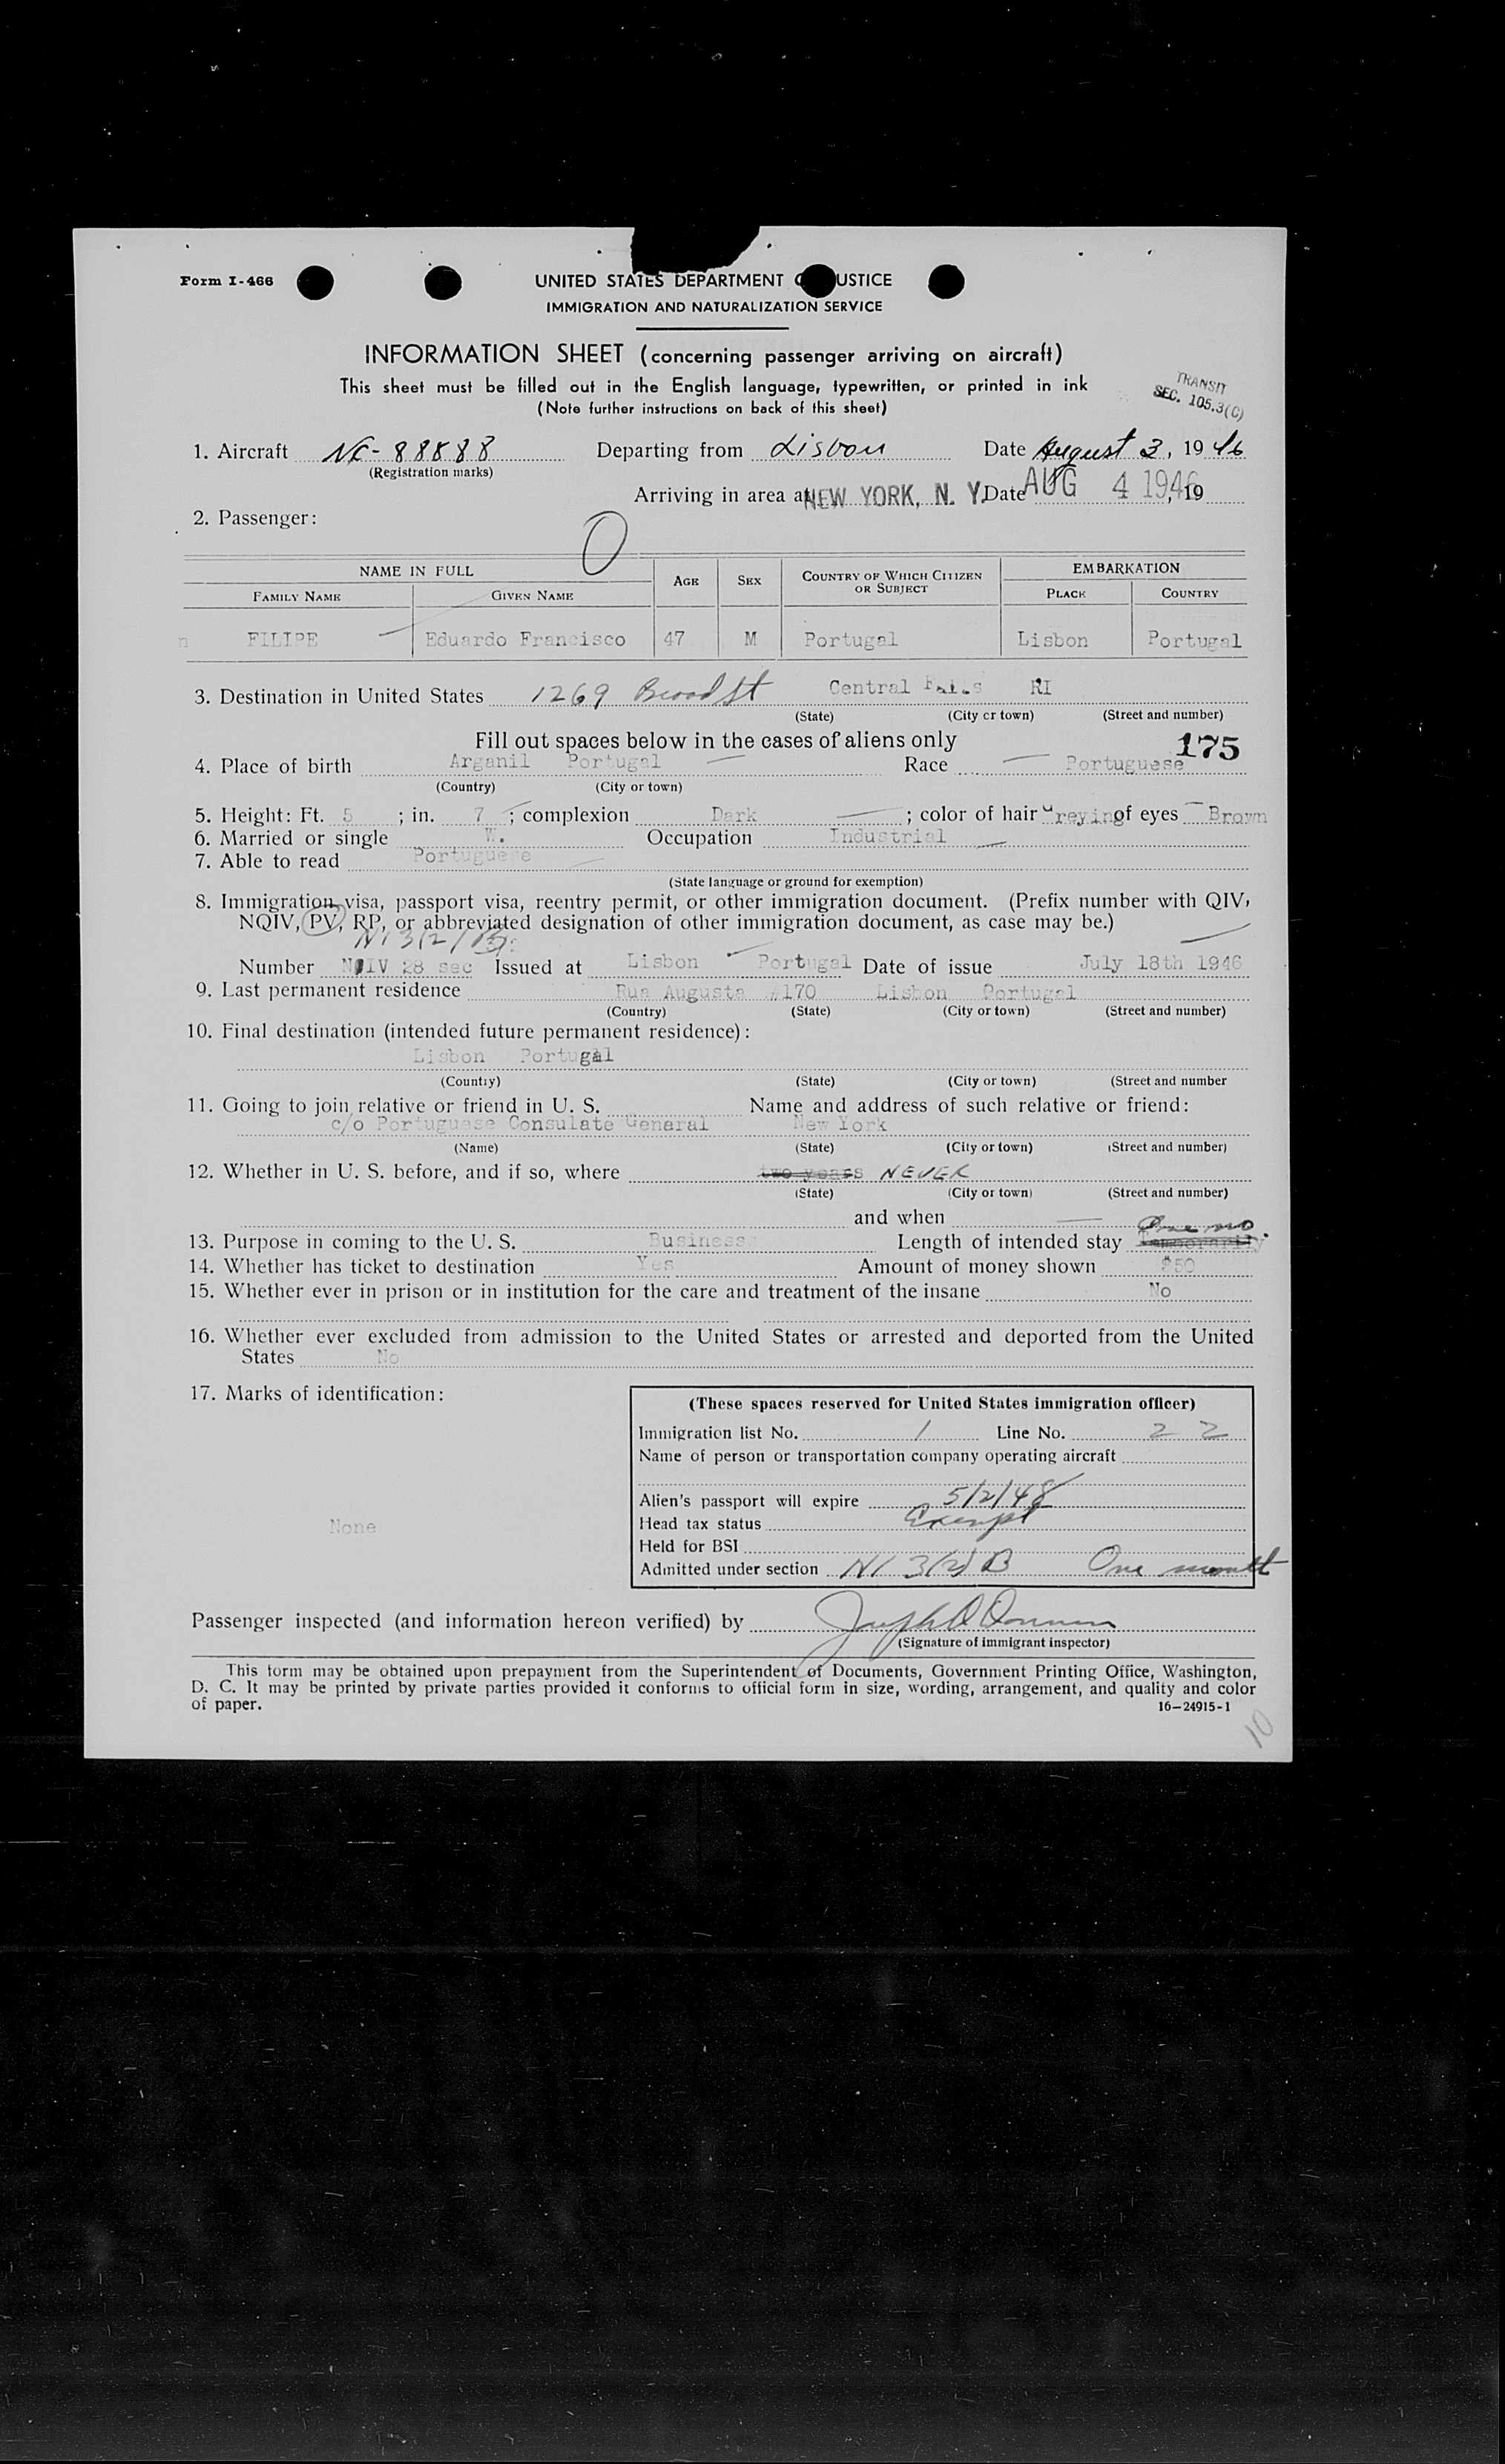 Form I-466
UNITED STATES DEPARTMENT O USTICE
IMMIGRATION AND NATURALIZATION SERVICE
INFORMATION SHEET (concerning passenger arriving on aircraft)
This sheet must be filled out in the English language, typewritten, or printed in ink
(Note further instructions on back of this sheet)
TRANSIT
SEC. 105.3(C)
1. Aircraft NC-88888 Departing from Lisbon Date August 3, 1946
(Registration marks)
Arriving in area at NEW YORK, N. Y. Date AUG 4 1946, 19
2. Passenger:
0
NAME IN FULL AGE SEX COUNTRY OF WHICH CITIZEN OR SUBJECT EMBARKATION
FAMILY NAME GIVEN NAME PLACE COUNTRY
n FILIPE Eduardo Francisco 47 M Portugal Lisbon Portugal
3. Destination in United States 1269 Broad St Central Falls RI
(State) (City or town) (Street and number)
Fill out spaces below in the cases of aliens only
175
4. Place of birth Arganil Portugal Race Portuguese
(Country) (City or town)
5. Height: Ft. 5 ; in. 7 ; complexion Dark ; color of hair Greying of eyes Brown
6. Married or single W. Occupation Industrial
7. Able to read Portuguese
(State language or ground for exemption)
8. Immigration visa, passport visa, reentry permit, or other immigration document. (Prefix number with QIV,
NQIV, PV, RP, or abbreviated designation of other immigration document, as case may be.)
NI 3(2) B
Number NQIV 28 sec Issued at Lisbon Portugal Date of issue July 18th 1946
9. Last permanent residence Rua Augusta #170 Lisbon Portugal
(Country) (State) (City or town) (Street and number)
10. Final destination (intended future permanent residence):
Lisbon Portugal
(Country) (State) (City or town) (Street and number
11. Going to join relative or friend in U. S. Name and address of such relative or friend:
c/o Portuguese Consulate General New York
(Name) (State) (City or town) (Street and number)
12. Whether in U. S. before, and if so, where two years NEVER
(State) (City or town) (Street and number)
and when
One mo.
13. Purpose in coming to the U. S. Business Length of intended stay Temporarily
14. Whether has ticket to destination Yes Amount of money shown $50
15. Whether ever in prison or in institution for the care and treatment of the insane No
16. Whether ever excluded from admission to the United States or arrested and deported from the United
States No
17. Marks of identification:
None
(These spaces reserved for United States immigration officer)
Immigration list No. 1 Line No. 22
Name of person or transportation company operating aircraft
Alien's passport will expire 5/2/48
Head tax status Exempt
Held for BSI
Admitted under section NI 3(2) B One month
Passenger inspected (and information hereon verified) by
(Signature of immigrant inspector)
This form may be obtained upon prepayment from the Superintendent of Documents, Government Printing Office, Washington,
D. C. It may be printed by private parties provided it conforms to official form in size, wording, arrangement, and quality and color
of paper.
16—24915-1
10